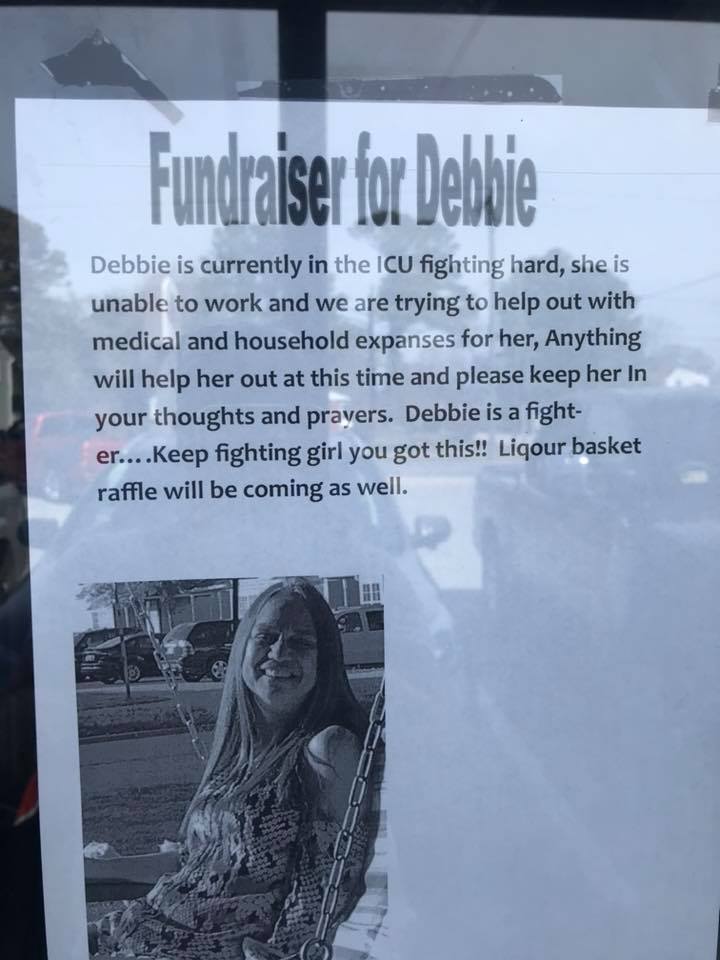 Fundraiser for Debbie
Debbie is currently in the ICU fighting hard, she is
unable to work and we are trying to help out with
medical and household expanses for her, Anything
will help her out at this time and please keep her In
your thoughts and prayers.  Debbie is a fight-
er....Keep fighting girl you got this!!  Liqour basket
raffle will be coming as well.